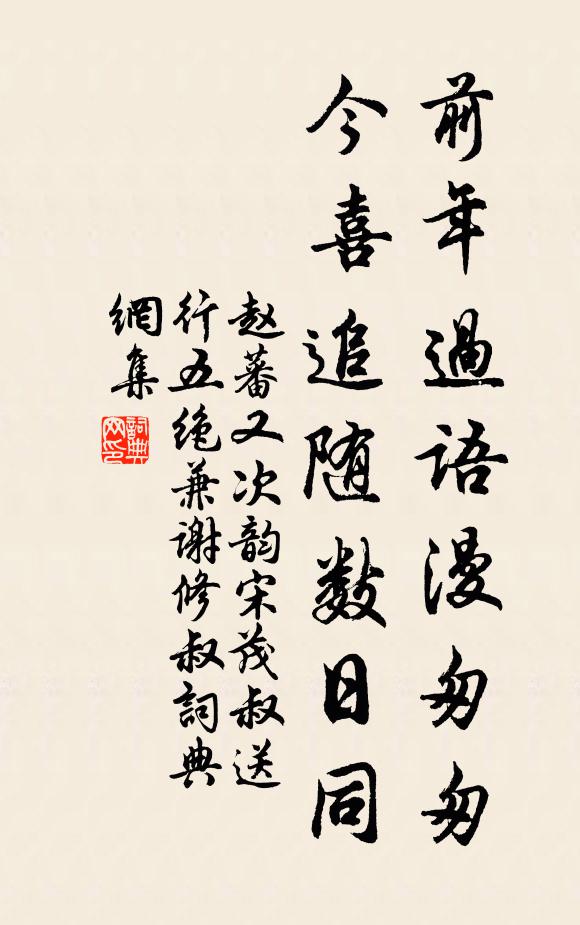 前年過语漫匆匆
今喜追随数日同
赵蕃又次韵宋茂叔送
行五绝兼谢修叔詞典
網集
詞典
网印